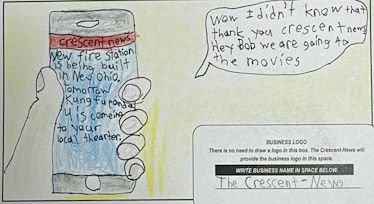 crescent news
New fire station
is being built
in Ney Ohio.
Tomorrow
Kung fu panda
4 is comeing
to your
local thearter.
Wow I didn't know that
thank you crescent news
Hey Bob we are going to
the movies
BUSINESS LOGO
There is no need to draw a logo in this box. The Crescent-News will
provide the business logo in this space.
WRITE BUSINESS NAME IN SPACE BELOW.
The Crescent-News